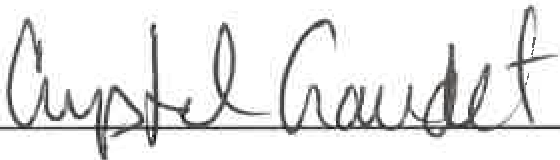 Crystal Gaudet